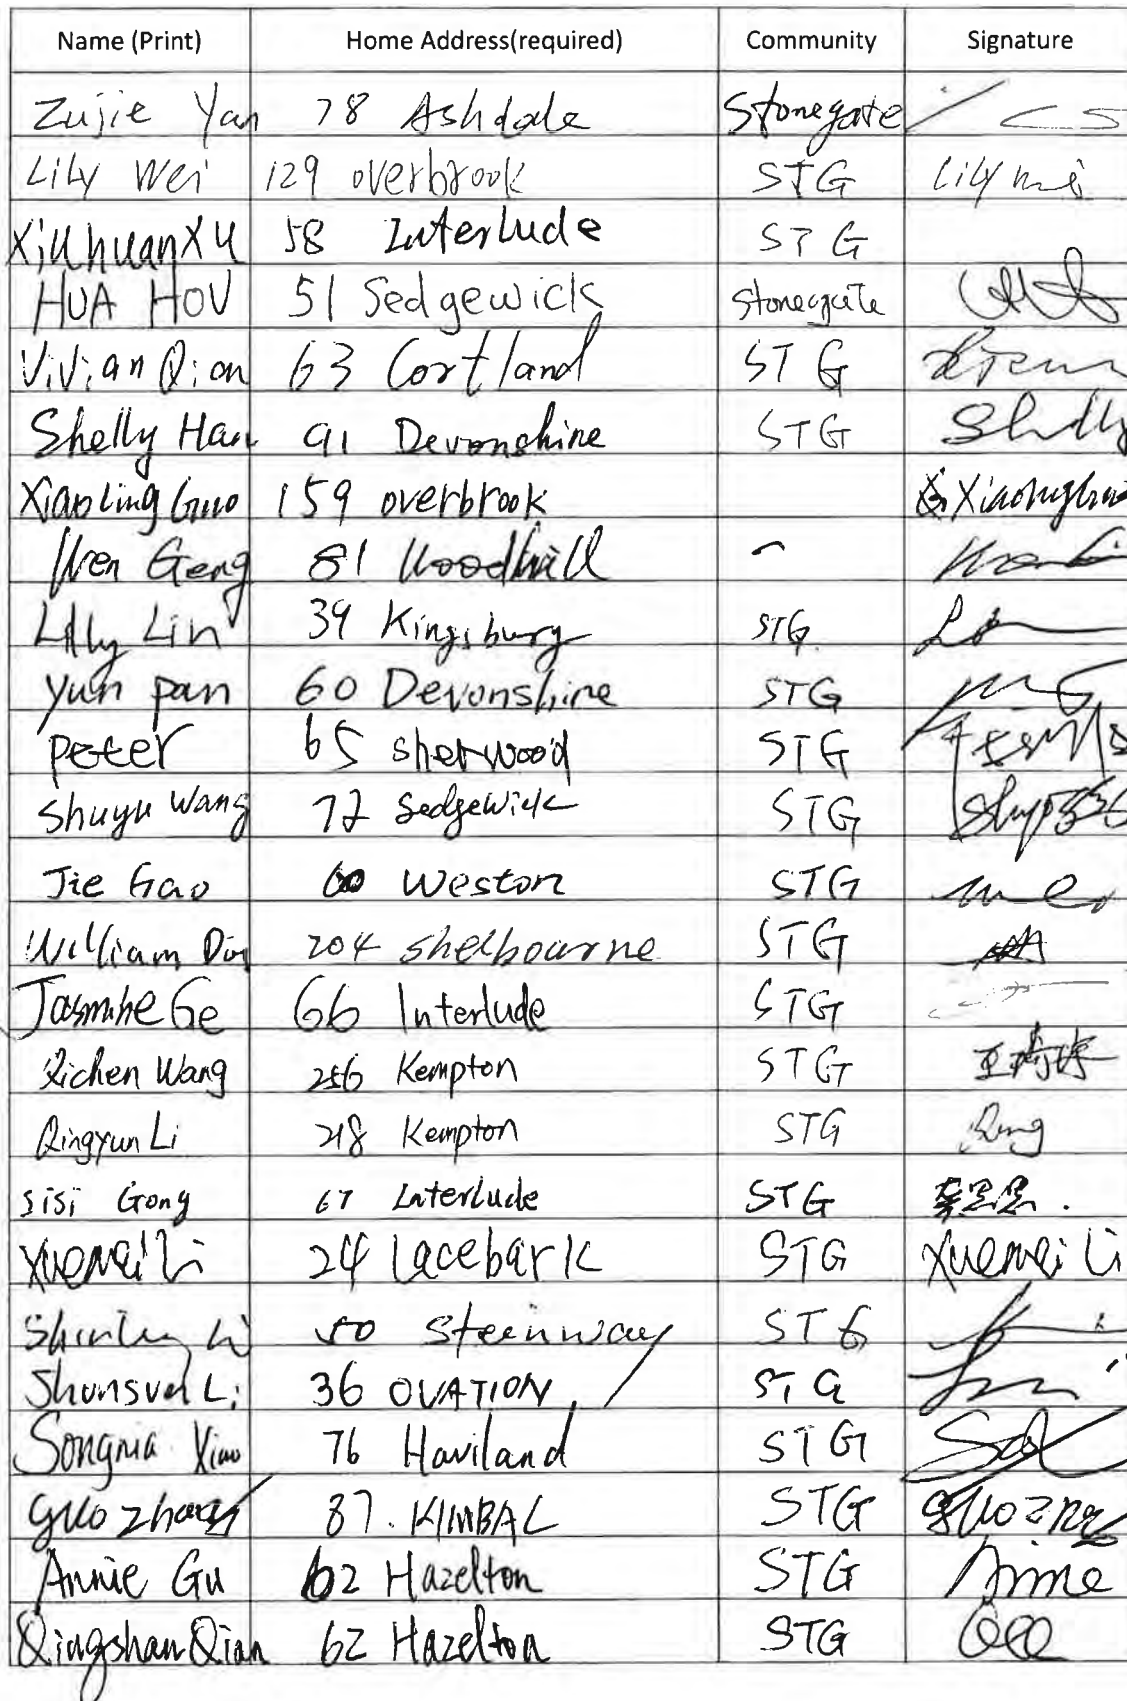 Name (Print) Home Address(required) Community Signature
Zujie Yan 78 Ashdale Stonegate
Lily Wei 129 overbrook STG Lily
Xiuhuan Xu 58 Interlude STG
HUA HOU 51 Sedgewick Stonegate
Vivian Qian 63 Cortland STG
Shelly Han 91 Devonshine STG Shelly
Xiaoling Guo 159 overbrook
Wen Geng 81 Woodhill
Lilly Lin 39 Kingsbury STG
Yun pan 60 Devonshire STG
Peter 65 sherwood STG
Shuyu Wang 72 Sedgewick STG
Jie Gao 60 Weston STG
William 204 Shelbourne STG
Jasmine Ge 66 Interlude STG
Qichen Wang 256 Kempton STG
Qingyun Li 218 Kempton STG Qing
Sisi Gong 67 Interlude STG 龚思思.
Xuemei Li 24 lacebark STG Xuemei Li
Shirley Li 50 Steinway STG
Li 36 OVATION STG
Songma Xiao 76 Haviland STG
guo zhang 87. KIMBAL STG
Annie Gu 62 Hazelton STG Annie
Qingshan Qian 62 Hazelton STG